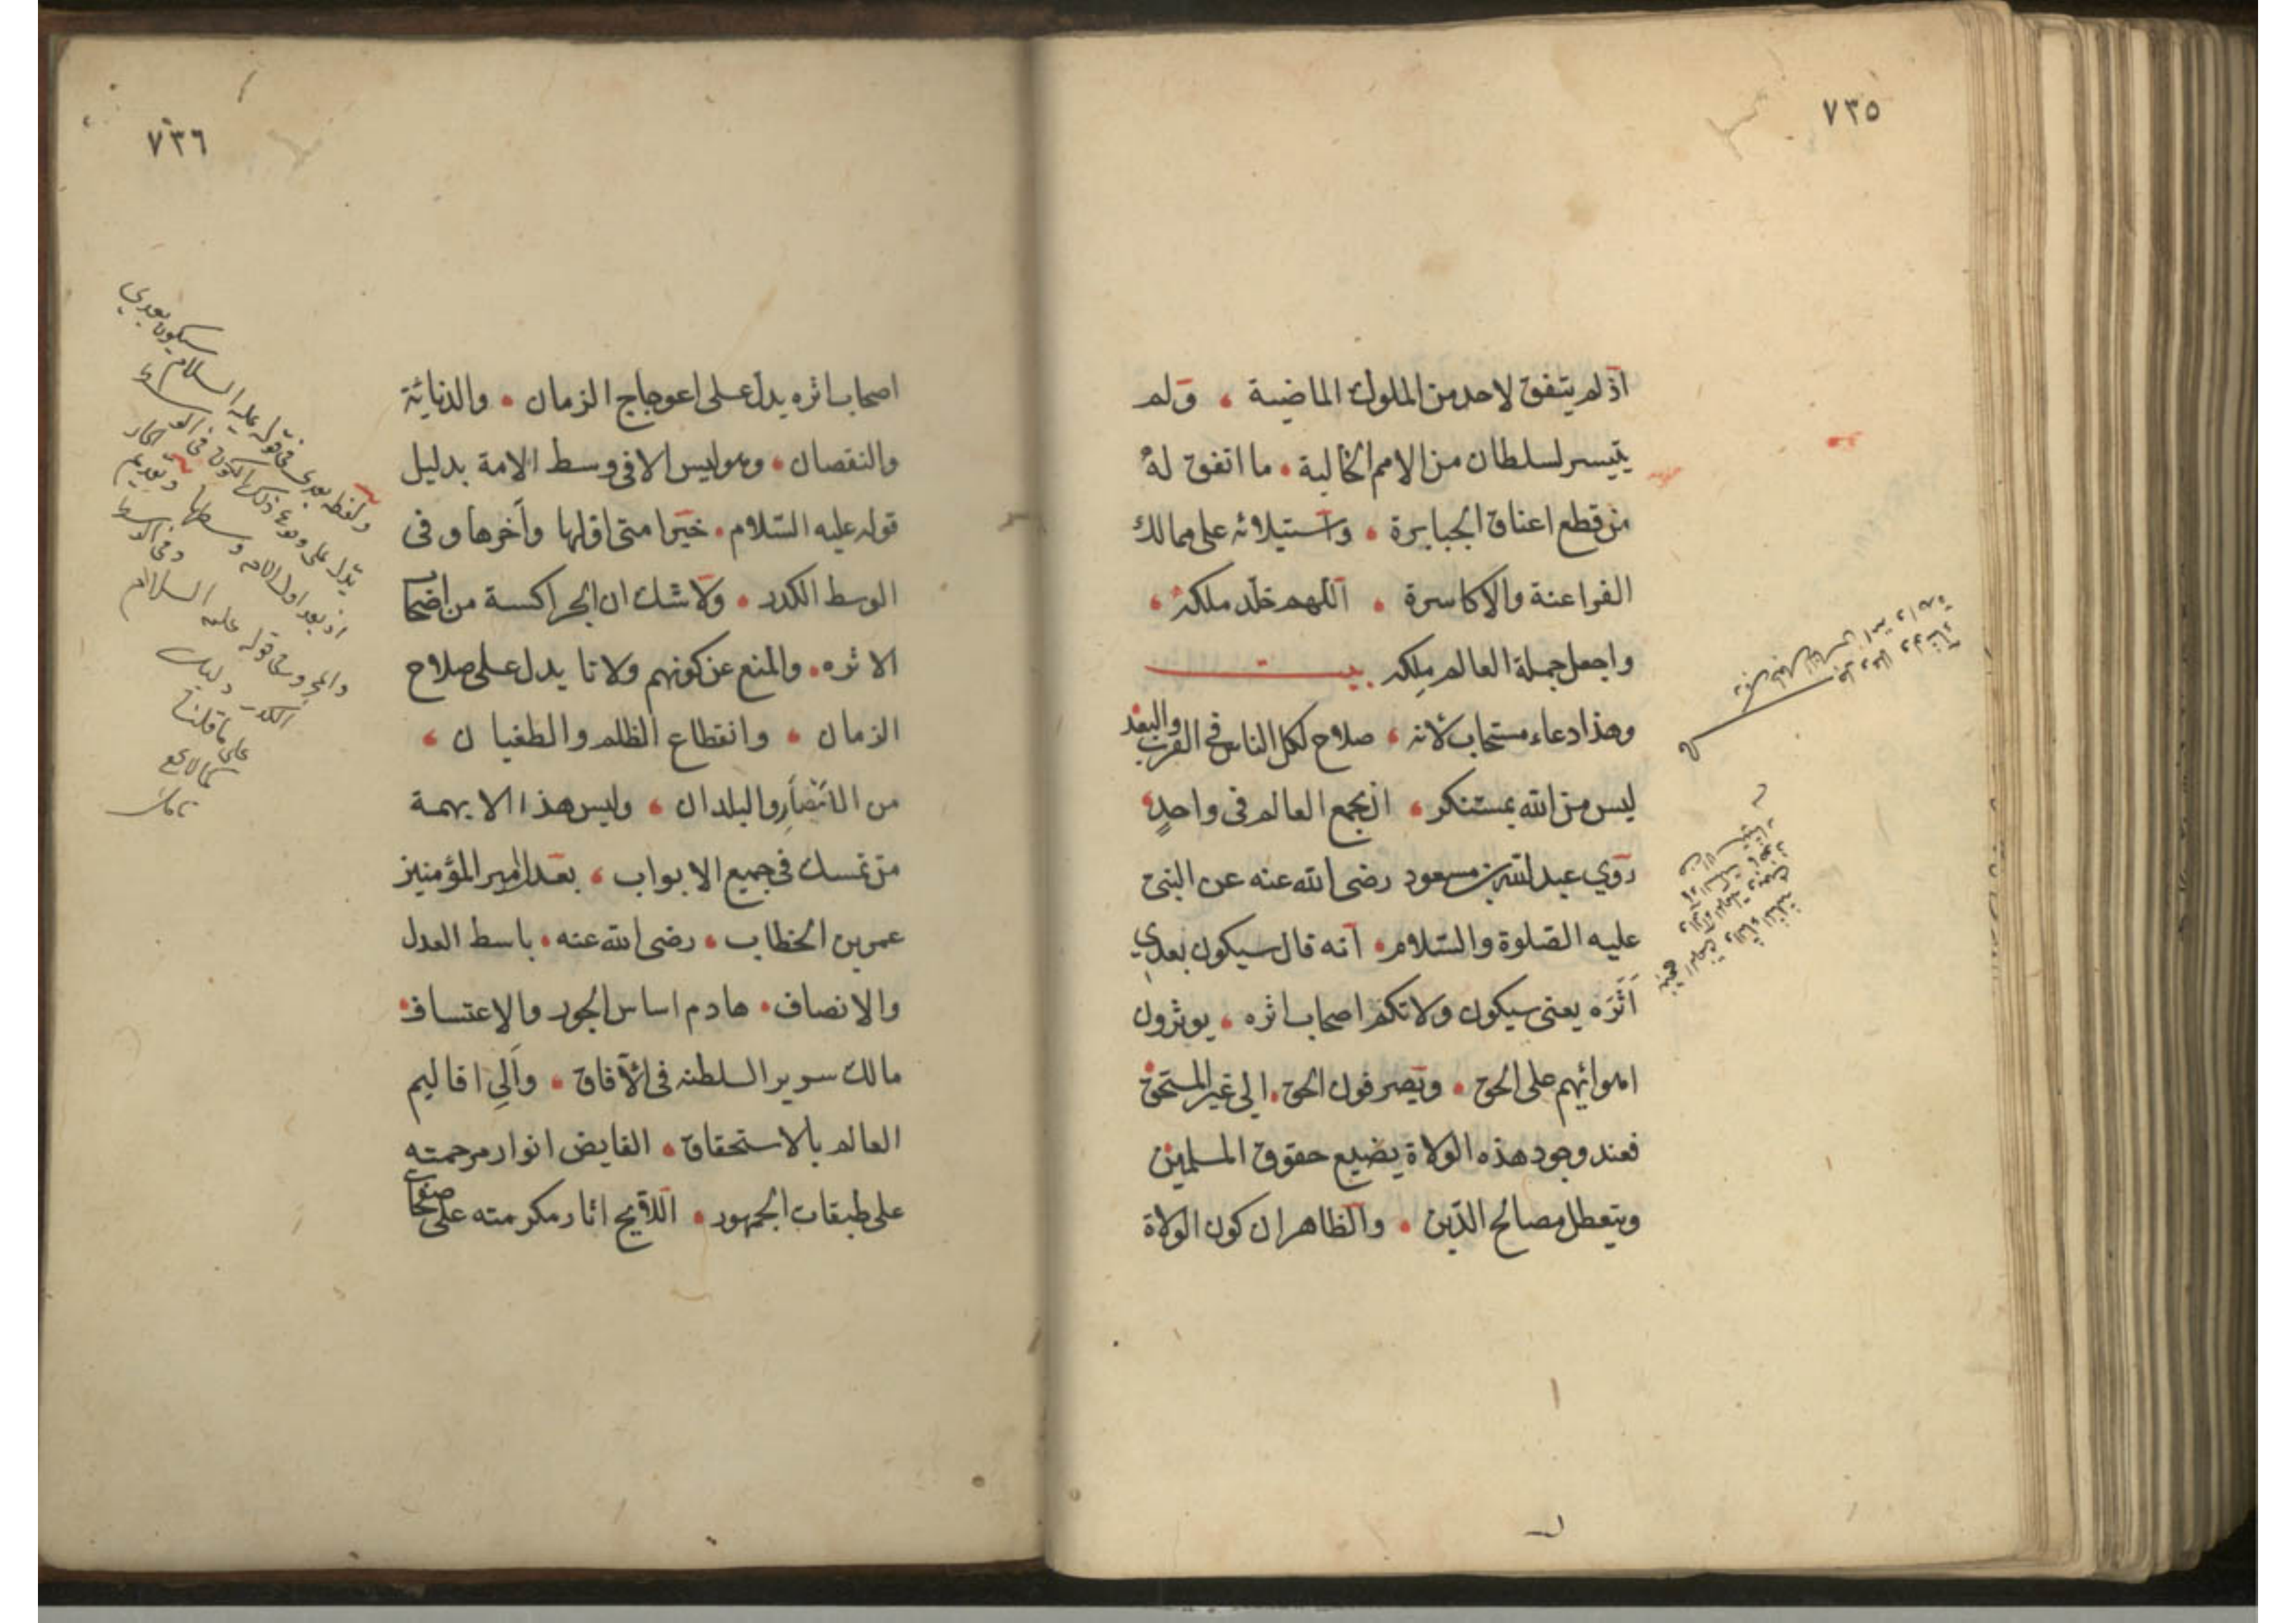 ٧٣٥
اذ لم يتفق لاحد من الملوك الماضية ، ولم
يتيسر لسلطان من الامم الخالية . ما اتفق له
من قطع اعناق الجبابرة . واستيلائه على ممالك
الفراعنة والاكاسرة . اللهم خلد ملكه ،
واجعل جملة العالم ملكه . بيت
وهذا دعاء مستجاب لانه ، صلاح لكل الناس في القرب والبعد
ليس من الله بمستنكر ، ان يجمع العالم في واحدٍ
روي عبد الله بن مسعود رضى الله عنه عن النبى
عليه الصلوة والسّلام . انه قال سيكون بعدي
اَثَرَه يعنى سيكون ولاتكم اصحاب اثره ، يوثرون
اهوائهم على الحق . ويصرفون الحق . الى غير المستحق
فعند وجود هذه الولاة يضيع حقوق المسلمين
ويتعطل مصالح الدّين . والظاهر ان كون الولاة
٧٣٦
اصحاب اثره يدل على اعوجاج الزمان . والدنائة
والنقصان . وهو ليس الا فى وسط الامة بدليل
قوله عليه السّلام . خير امتى اولها وآخرها وفى
الوسط الكدر . ولا شك ان الجراكسة من اصحاب
الاثره . والمنع عن كونهم ولاتا يدل على صلاح
الزمان ، وانقطاع الظلم والطغيان ،
من والبلدان ، وليس هذا الا بهمة
من تمسك فى جميع الابواب ، بعدل امير المؤمنين
عمر بن الخطاب . رضى الله عنه . باسط العدل
والانصاف . هادم اساس الجور والاعتساف
مالك سرير السلطنه فى الآفاق . والى اقاليم
العالم بالاستحقاق . الفايض انوار مرحمته
على طبقات الجمهور . اللايح اثار مكرمته على
ولفظه بعدى فى قوله عليه السلام سيكون بعدي
يدل على وقوع ذلك الكون فى
اذ بعد اول
وفى الوسط
قوله عليه السلام
الكدر دليل
على ما قلنا
كما لا يخفى
تامل